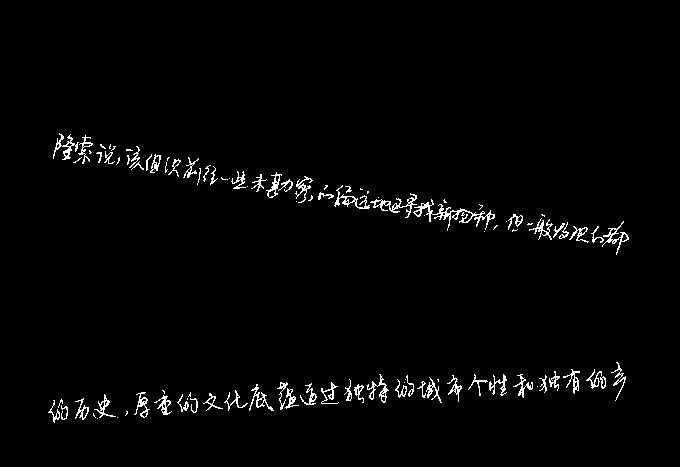 隆索说,该组织前往一些未勘察的偏远地区寻找新物种,但一般发现的都
的历史,厚重的文化底蕴通过独特的城市个性和独有的产